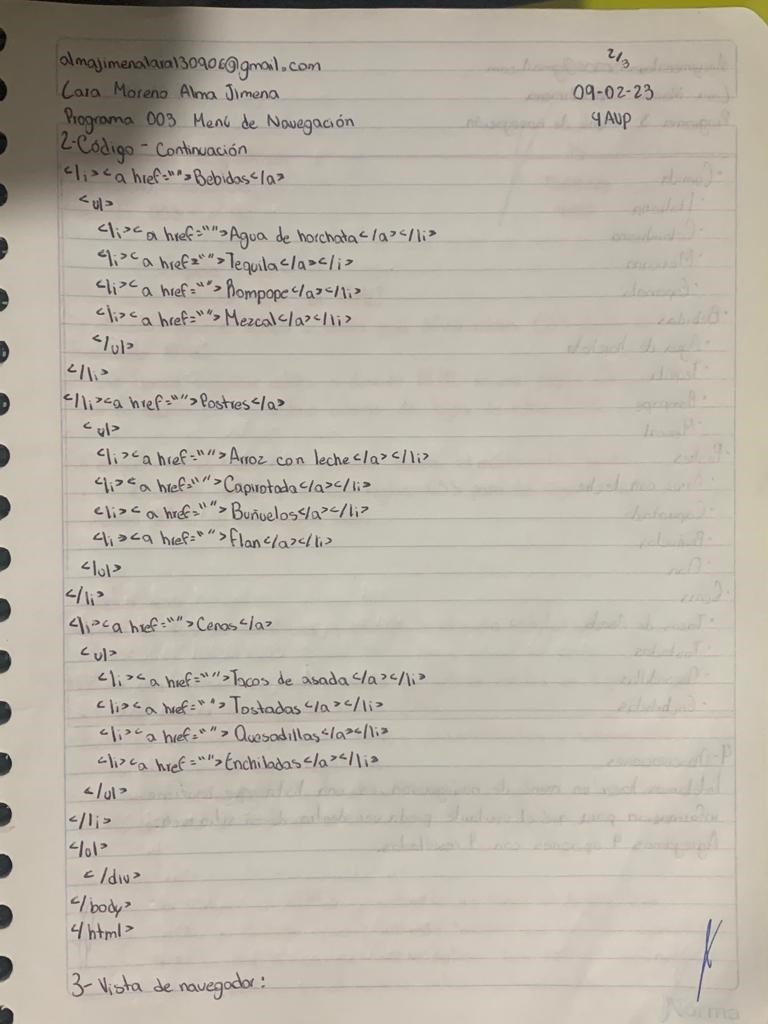 almajimenalara130906@gmail.com
2/3
Lara Moreno Alma Jimena
09-02-23
Programa 003 Menú de Navegación
4 AVP
2-Código - Continuación
<li><a href="">Bebidas</a>
<ul>
<li><a href="">Agua de horchata</a></li>
<li><a href="">Tequila</a></li>
<li><a href="">Rompope</a></li>
<li><a href="">Mezcal</a></li>
</ul>
</li>
</li><a href="">Postres</a>
<ul>
<li><a href="">Arroz con leche</a></li>
<li><a href="">Capirotada</a></li>
<li><a href="">Buñuelos</a></li>
<li><a href="">flan</a></li>
</ul>
</li>
<li><a href="">Cenas</a>
<ul>
<li><a href="">Tacos de asada</a></li>
<li><a href="">Tostadas</a></li>
<li><a href="">Quesadillas</a></li>
<li><a href="">Enchiladas</a></li>
</ul>
</li>
</ol>
</div>
</body>
</html>
3- Vista de navegador:
Norma